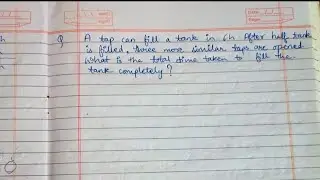 Q A tap can fill a tank in 6h After half tank
is filled, three more similar taps are opened
What is the total time taken to fill the
tank completely?